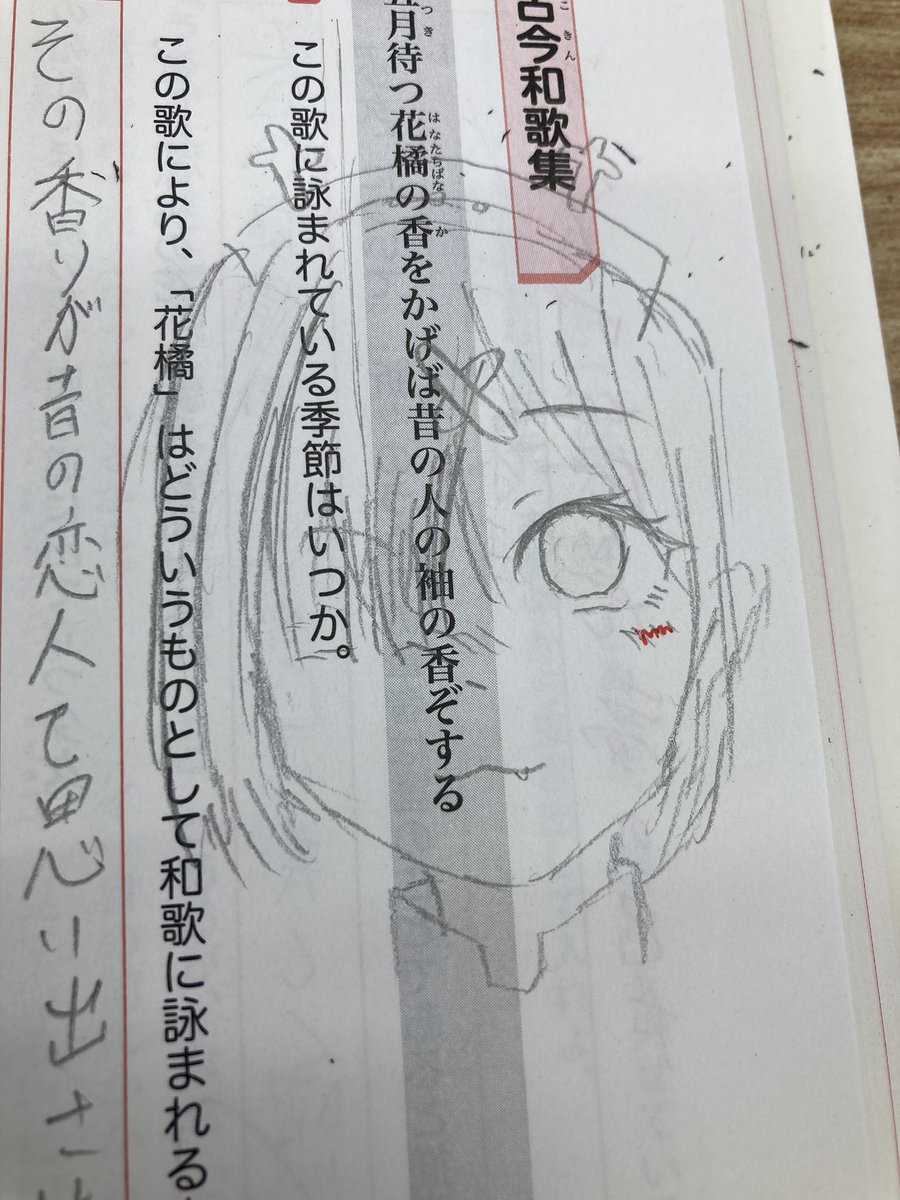 古今和歌集
こきん
五月待つ花橘の香をかげば昔の人の袖の香ぞする
つき
はなたちばな
か
この歌に詠まれている季節はいつか。
この歌により、「花橘」はどういうものとして和歌に詠まれる
その香りが昔の恋人て思い出させ